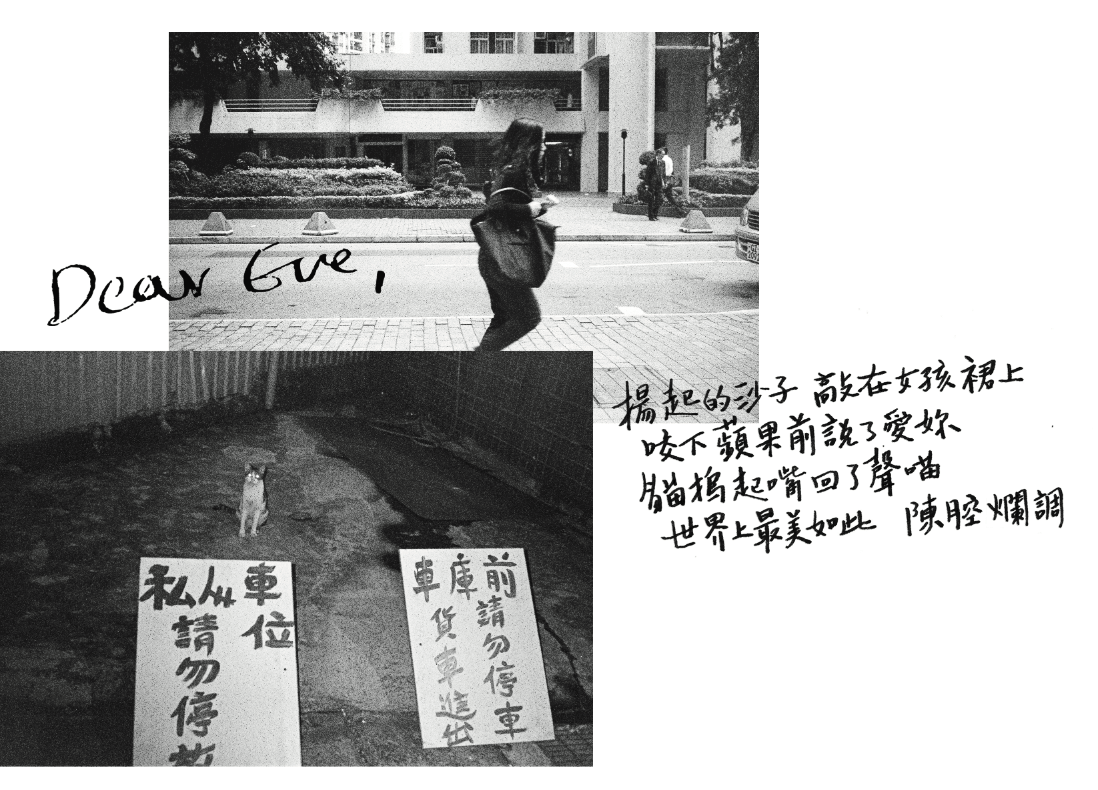 Dear Eve,
揚起的沙子 敲在女孩裙上
咬下蘋果前說了愛妳
貓摀起嘴回了聲喵
世界上最美如此 陳腔爛調
私人車位
請勿停放
車庫前
請勿停車
貨車進出